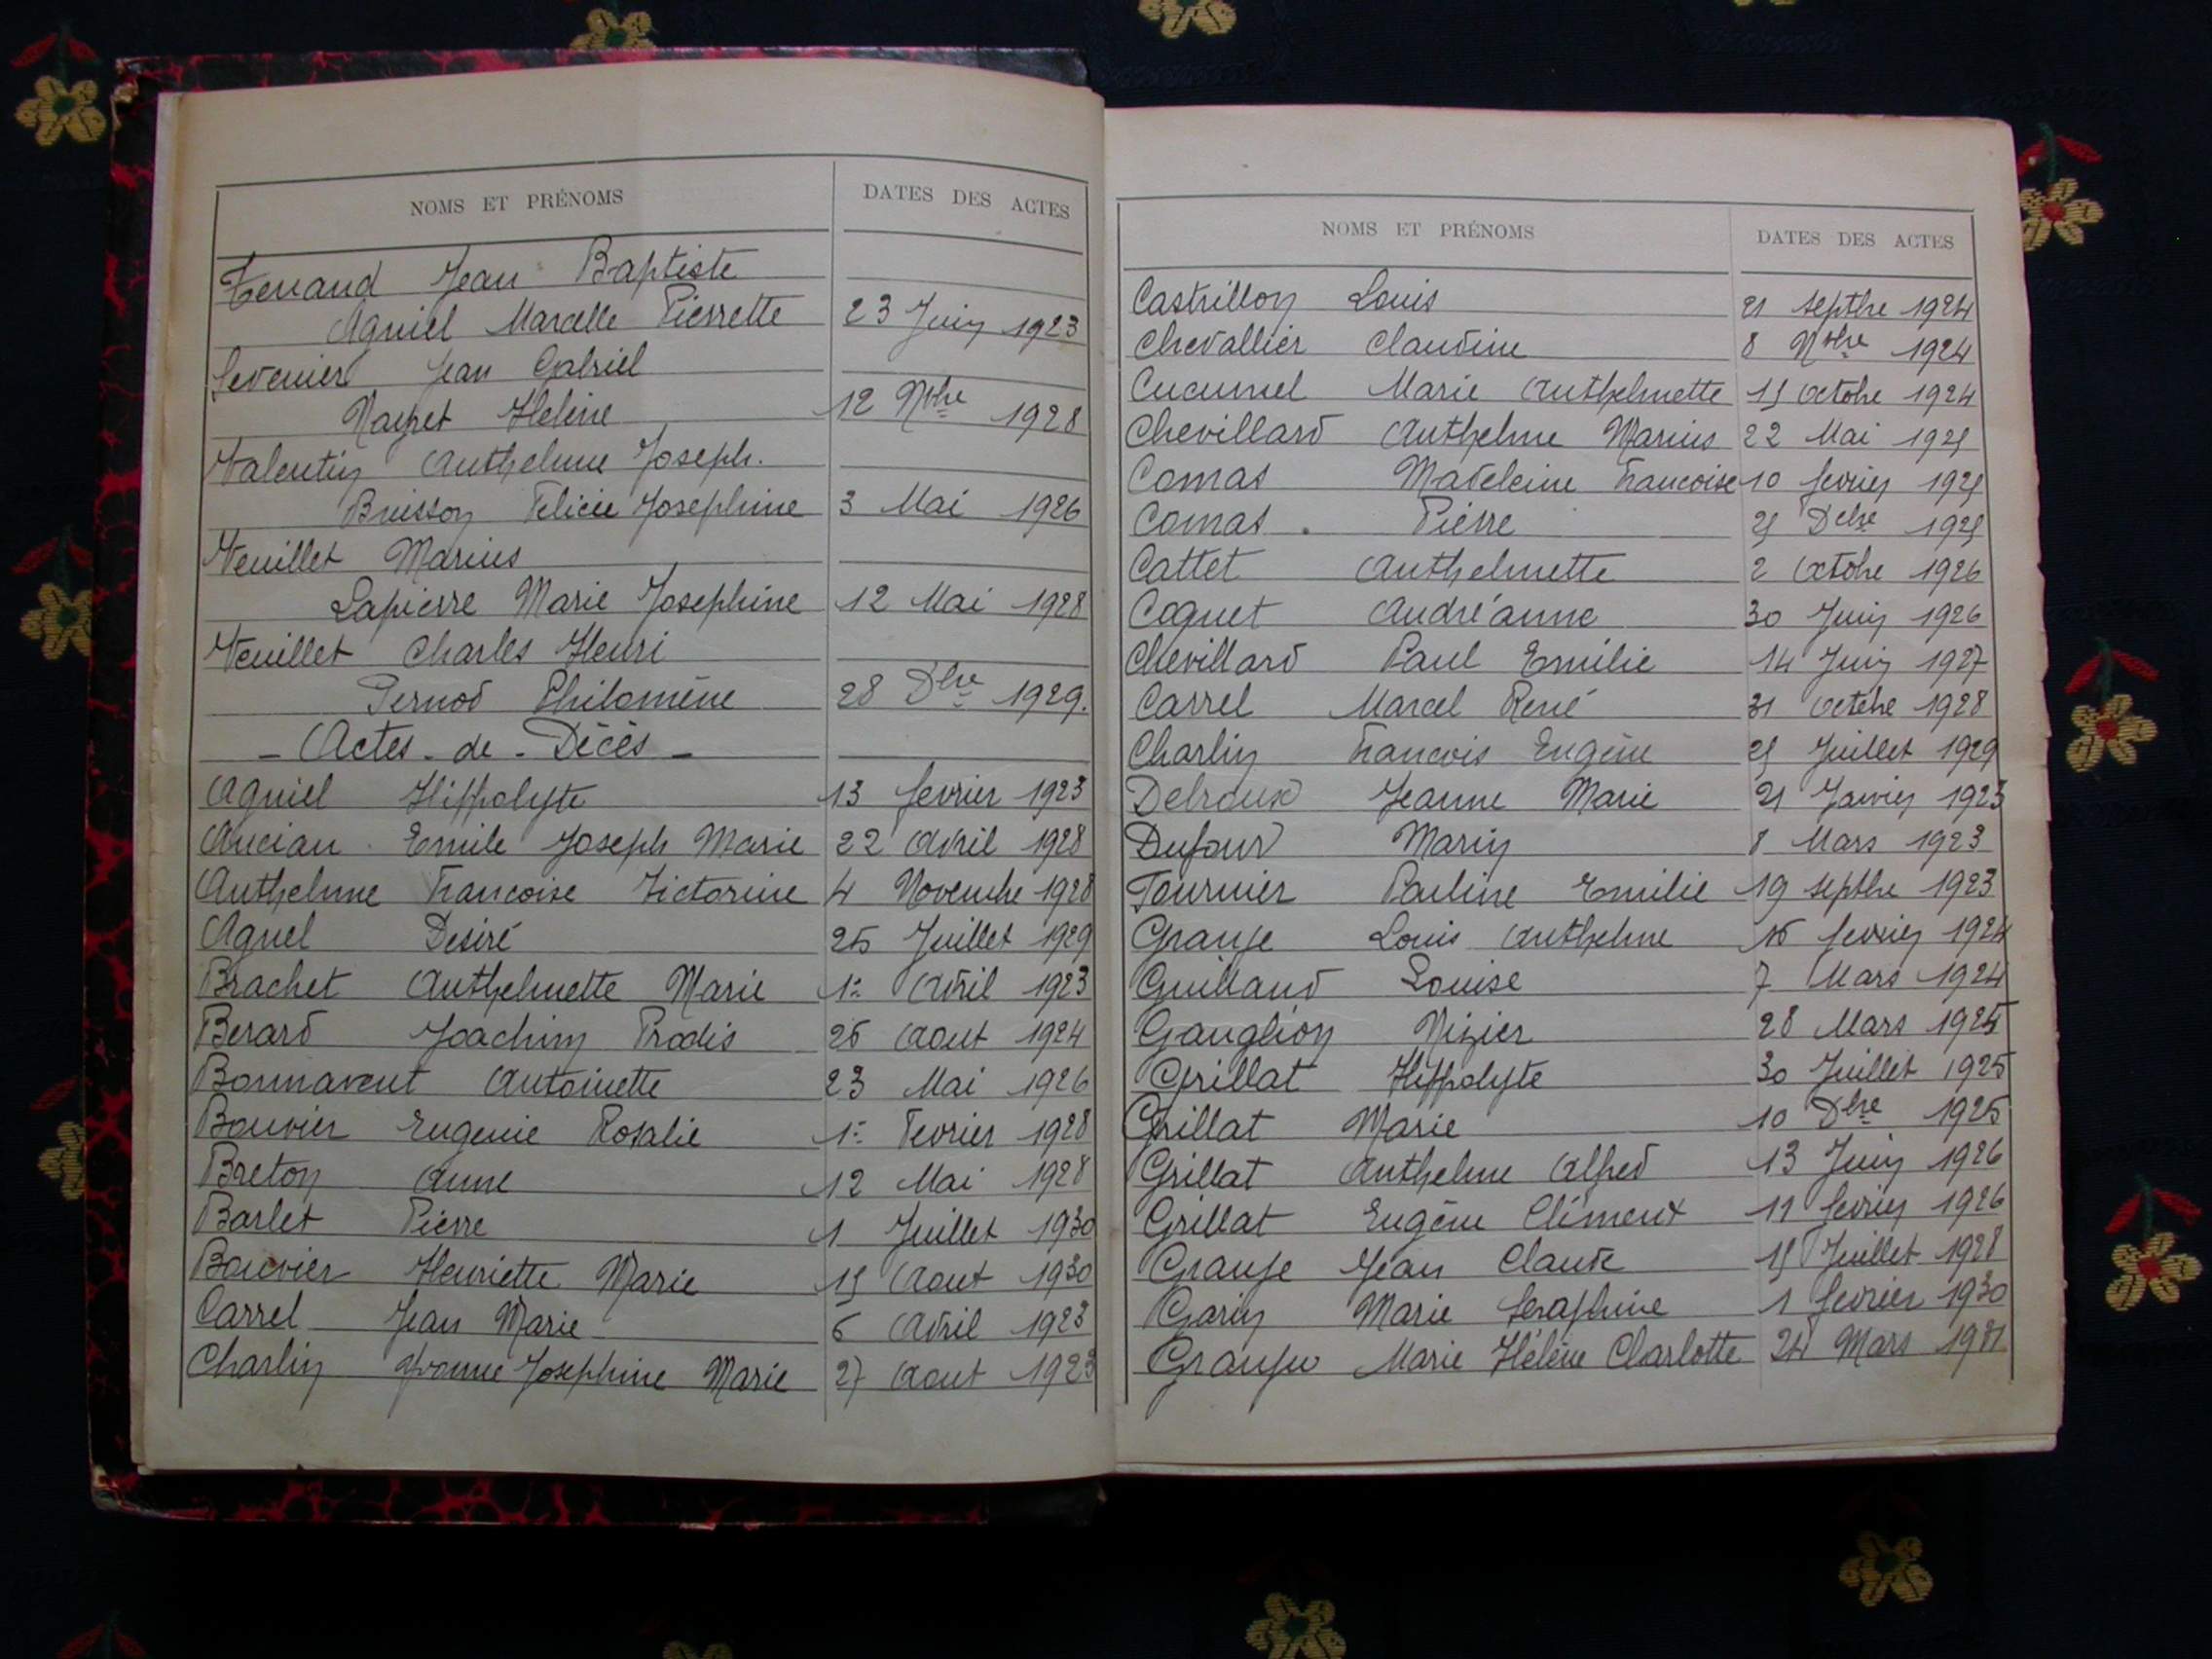 NOMS ET PRÉNOMS DATES DES ACTES
Tenand Jean Baptiste
Agniel Marcelle Pierrette 23 Juin 1923
Sevenier Jean Gabriel
Hélène 12 Nbre 1928
Valentin Anthelme Joseph.
Buisson Felicie Josephine 3 Mai 1926
Veuillet Marius
Lapierre Marie Josephine 12 Mai 1928
Veuillet Charles Henri
Pernod Philomène 28 Dbre 1929.
- Actes - de - Décès -
Agniel Hippolyte 13 fevrier 1923
Ancian Emile Joseph Marie 22 Avril 1928
Anthelme Francoise Victorine 4 Novembre 1928
Agnel Desiré 25 Juillet 1929
Brachet Anthelmette Marie 1er Avril 1923
Berard Joachim Prodis 26 Aout 1924
Bonnavent Antoinette 23 Mai 1926
Bouvier Eugenie Rosalie 1er Fevrier 1928
Breton Anne 12 Mai 1928
Barlet Pierre 1 Juillet 1930
Bouvier Henriette Marie 15 Aout 1930
Carrel Jean Marie 6 Avril 1923
Charlin Yvonne Josephine Marie 27 Aout 1923
NOMS ET PRÉNOMS DATES DES ACTES
Castrillon Louis 21 septbre 1924
Chevallier Claudine 8 Nbre 1924
Cucumel Marie Anthelmette 15 Octobre 1924
Chevillard Anthelme Marius 22 Mai 1925
Comas Madeleine Francoise 10 fevrier 1925
Comas Pierre 25 Dbre 1925
Cattet Anthelmette 2 Octobre 1926
Coquet Andréanne 30 Juin 1926
Chevillard Paul Emilie 14 Juin 1927
Carrel Marcel René 31 Octobre 1928
Charlin Francois Eugène 25 Juillet 1929
Delroux Jeanne Marie 21 Janvier 1923
Dufour Marin 8 Mars 1923
Fournier Pauline Emilie 19 septbre 1923
Grange Louis Anthelme 16 fevrier 1924
Guilland Louise 7 Mars 1924
Ganglion Nizier 28 Mars 1925
Grillat Hippolyte 30 Juillet 1925
Grillat Marie 10 Dbre 1925
Grillat Anthelme Alfred 13 Juin 1926
Grillat Eugène Clément 11 fevrier 1926
Grange Jean Claude 15 Juillet 1928
Garin Marie Seraphine 1 fevrier 1930
Marie Hélène Charlotte 24 Mars